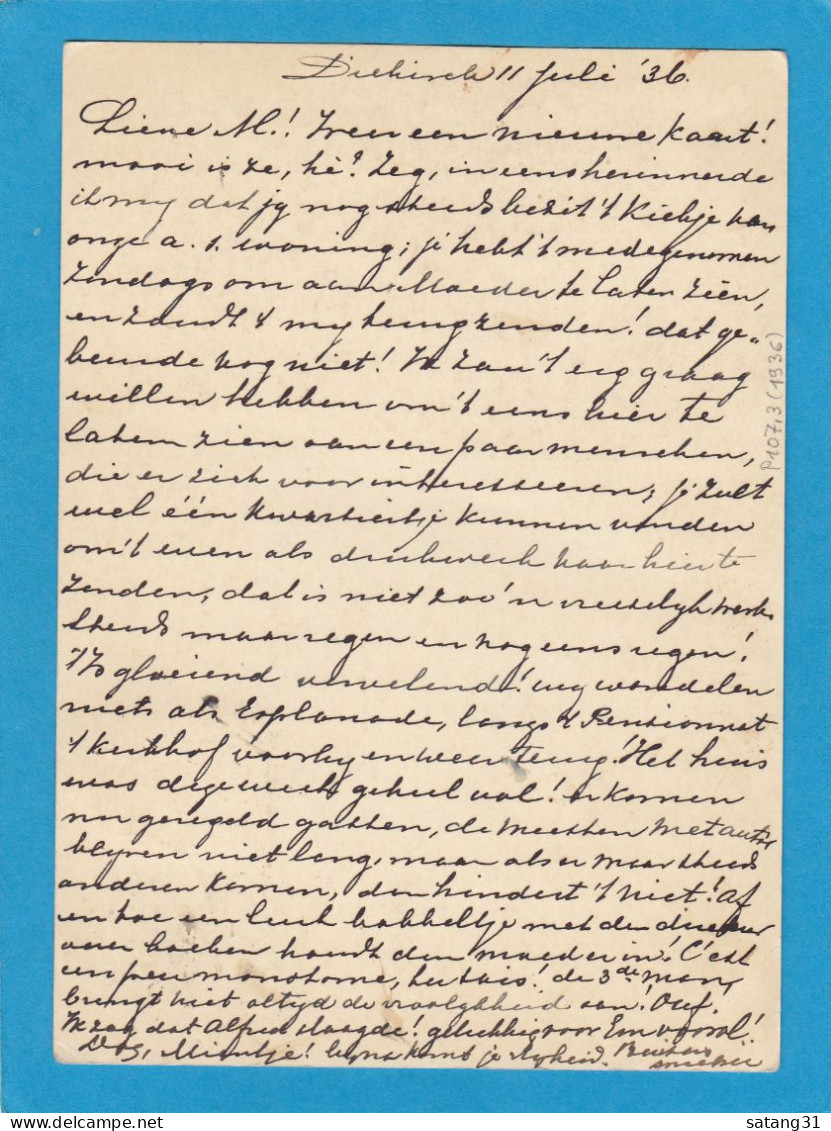 Diekirch 11 Juli '36.
Lieve M.! Weer een nieuwe kaart!
mooi is ze, hè? Zeg, ineens herinnerde
ik my dat jy nog steeds bezit 't kiekje van
onze a. s. woning; je hebt 't medegenomen
Zondags om aan Moeder te laten zien,
en zoudt 't my terugzenden! dat ge„
beurde nog niet! Ik zou 't erg graag
willen hebben om 't eens hier te
laten zien aan een paar menschen,
die er zich voor interesseeren; je zult
wel één kwartiertje kunnen vinden
om 't even als drukwerk naar hier te
zenden, dat is niet zoo'n vreeselyk werk
steeds maar regen en nog eens regen!
't Is gloeiend vervelend! weg wandelen
niets als Esplanade, langs 't Pensionnat
't kerkhof voorby en weer terug! Het huis
was deze week geheel vol! er komen
nu geregeld gasten, de meesten met auto,
blyven niet lang, maar als er maar steeds
anderen komen, dan hindert 't niet! Af
en toe een leuk babbeltje met den
over boeken houdt den moed er in! C'est
un peu monotone, tu sais! de 3de man,
brengt niet altyd de vroolykheid aan! Ouf!
Ik zag dat Alfred slaagde! gelukkig voor Em vooral!
Dag, Mientje! byna komt je vryheid.
P107,3 (1936)
satang31